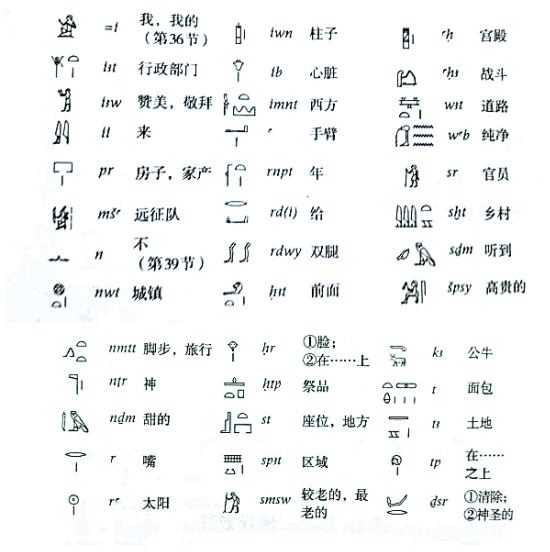 =i 我，我的（第36节） iwn 柱子 ꜥḥ 宫殿
iꜣt 行政部门 ib 心脏 ꜥḥꜣ 战斗
iꜣw 赞美，敬拜 imnt 西方 wꜣt 道路
ii 来 ꜥ 手臂 wꜥb 纯净
pr 房子，家产 rnpt 年 sr 官员
mšꜥ 远征队 rd(i) 给 sḫt 乡村
n 不（第39节） rdwy 双腿 sḏm 听到
nwt 城镇 ḥꜣt 前面 špsy 高贵的
nmtt 脚步，旅行 ḥr ①脸；②在……上 kꜣ 公牛
nṯr 神 ḥtp 祭品 t 面包
nḏm 甜的 st 座位，地方 tꜣ 土地
r 嘴 spꜣt 区域 tp 在……之上
rꜥ 太阳 smsw 较老的，最老的 ḏsr ①清除；②神圣的